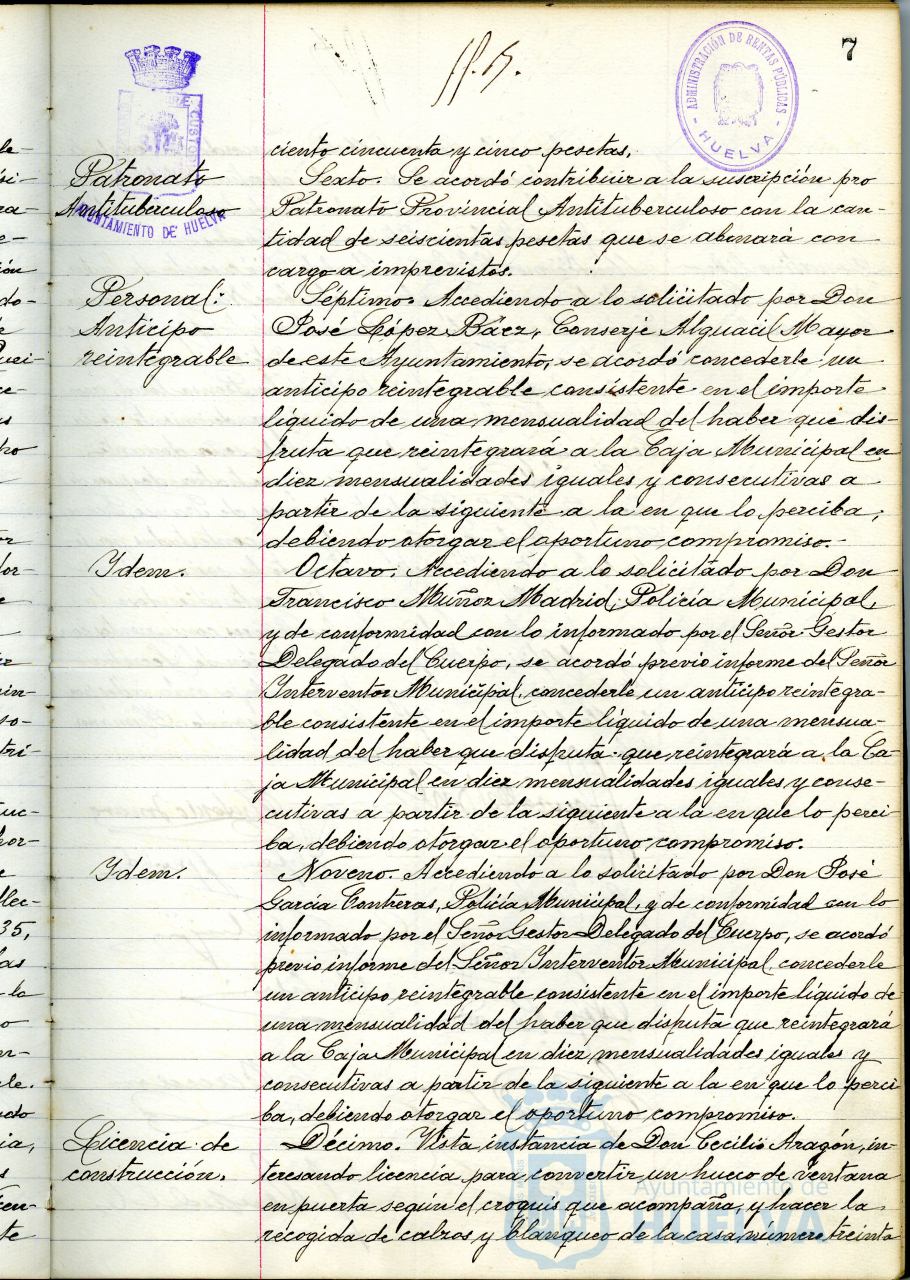 7
ff. 15.
ADMINISTRACIÓN DE RENTAS PÚBLICAS
- HUELVA -
CUSTO
AYUNTAMIENTO DE HUELVA
ciento cincuenta y cinco pesetas.
Patronato
Antituberculoso
Sexto. Se acordó contribuir a la suscripción pro
Patronato Provincial Antituberculoso con la can-
tidad de seiscientas pesetas que se abonará con
cargo a imprevistos.
Personal:
Anticipo
reintegrable
Séptimo. Accediendo a lo solicitado por Don
José López Báez, Conserje Alguacil Mayor
de este Ayuntamiento, se acordó concederle un
anticipo reintegrable consistente en el importe
líquido de una mensualidad del haber que dis-
fruta que reintegrará a la Caja Municipal en
diez mensualidades iguales y consecutivas a
partir de la siguiente a la en que lo perciba,
debiendo otorgar el oportuno compromiso.-
Ydem.
Octavo. Accediendo a lo solicitado por Don
Francisco Muñoz Madrid, Policía Municipal,
y de conformidad con lo informado por el Señor Gestor
Delegado del Cuerpo, se acordó previo informe del Señor
Interventor Municipal, concederle un anticipo reintegra-
ble consistente en el importe líquido de una mensua-
lidad del haber que disfruta que reintegrará a la Ca-
ja Municipal en diez mensualidades iguales y conse-
cutivas a partir de la siguiente a la en que lo perci-
ba, debiendo otorgar el oportuno compromiso.
Ydem.
Noveno. Accediendo a lo solicitado por Don José
García Contreras, Policía Municipal, y de conformidad con lo
informado por el Señor Gestor Delegado del Cuerpo, se acordó
previo informe del Señor Interventor Municipal, concederle
un anticipo reintegrable consistente en el importe líquido de
una mensualidad del haber que disfruta que reintegrará
a la Caja Municipal en diez mensualidades iguales y
consecutivas a partir de la siguiente a la en que lo perci
ba, debiendo otorgar el oportuno compromiso.
Licencia de
construcción.
Décimo. Vista instancia de Don Cecilio Aragón, in-
teresando licencia para convertir un hueco de ventana
en puerta según el croquis que acompaña, y hacer la
recogida de calzos y blanqueo de la casa numero treinta
Ayuntamiento de
HUELVA